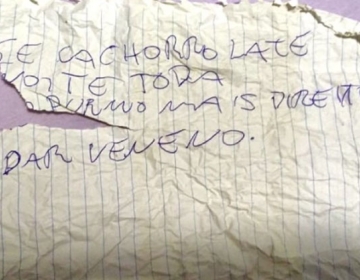 TE CACHORRO LATE
NOITE TODA
DURMO MAIS DIREIT
DAR VENENO.